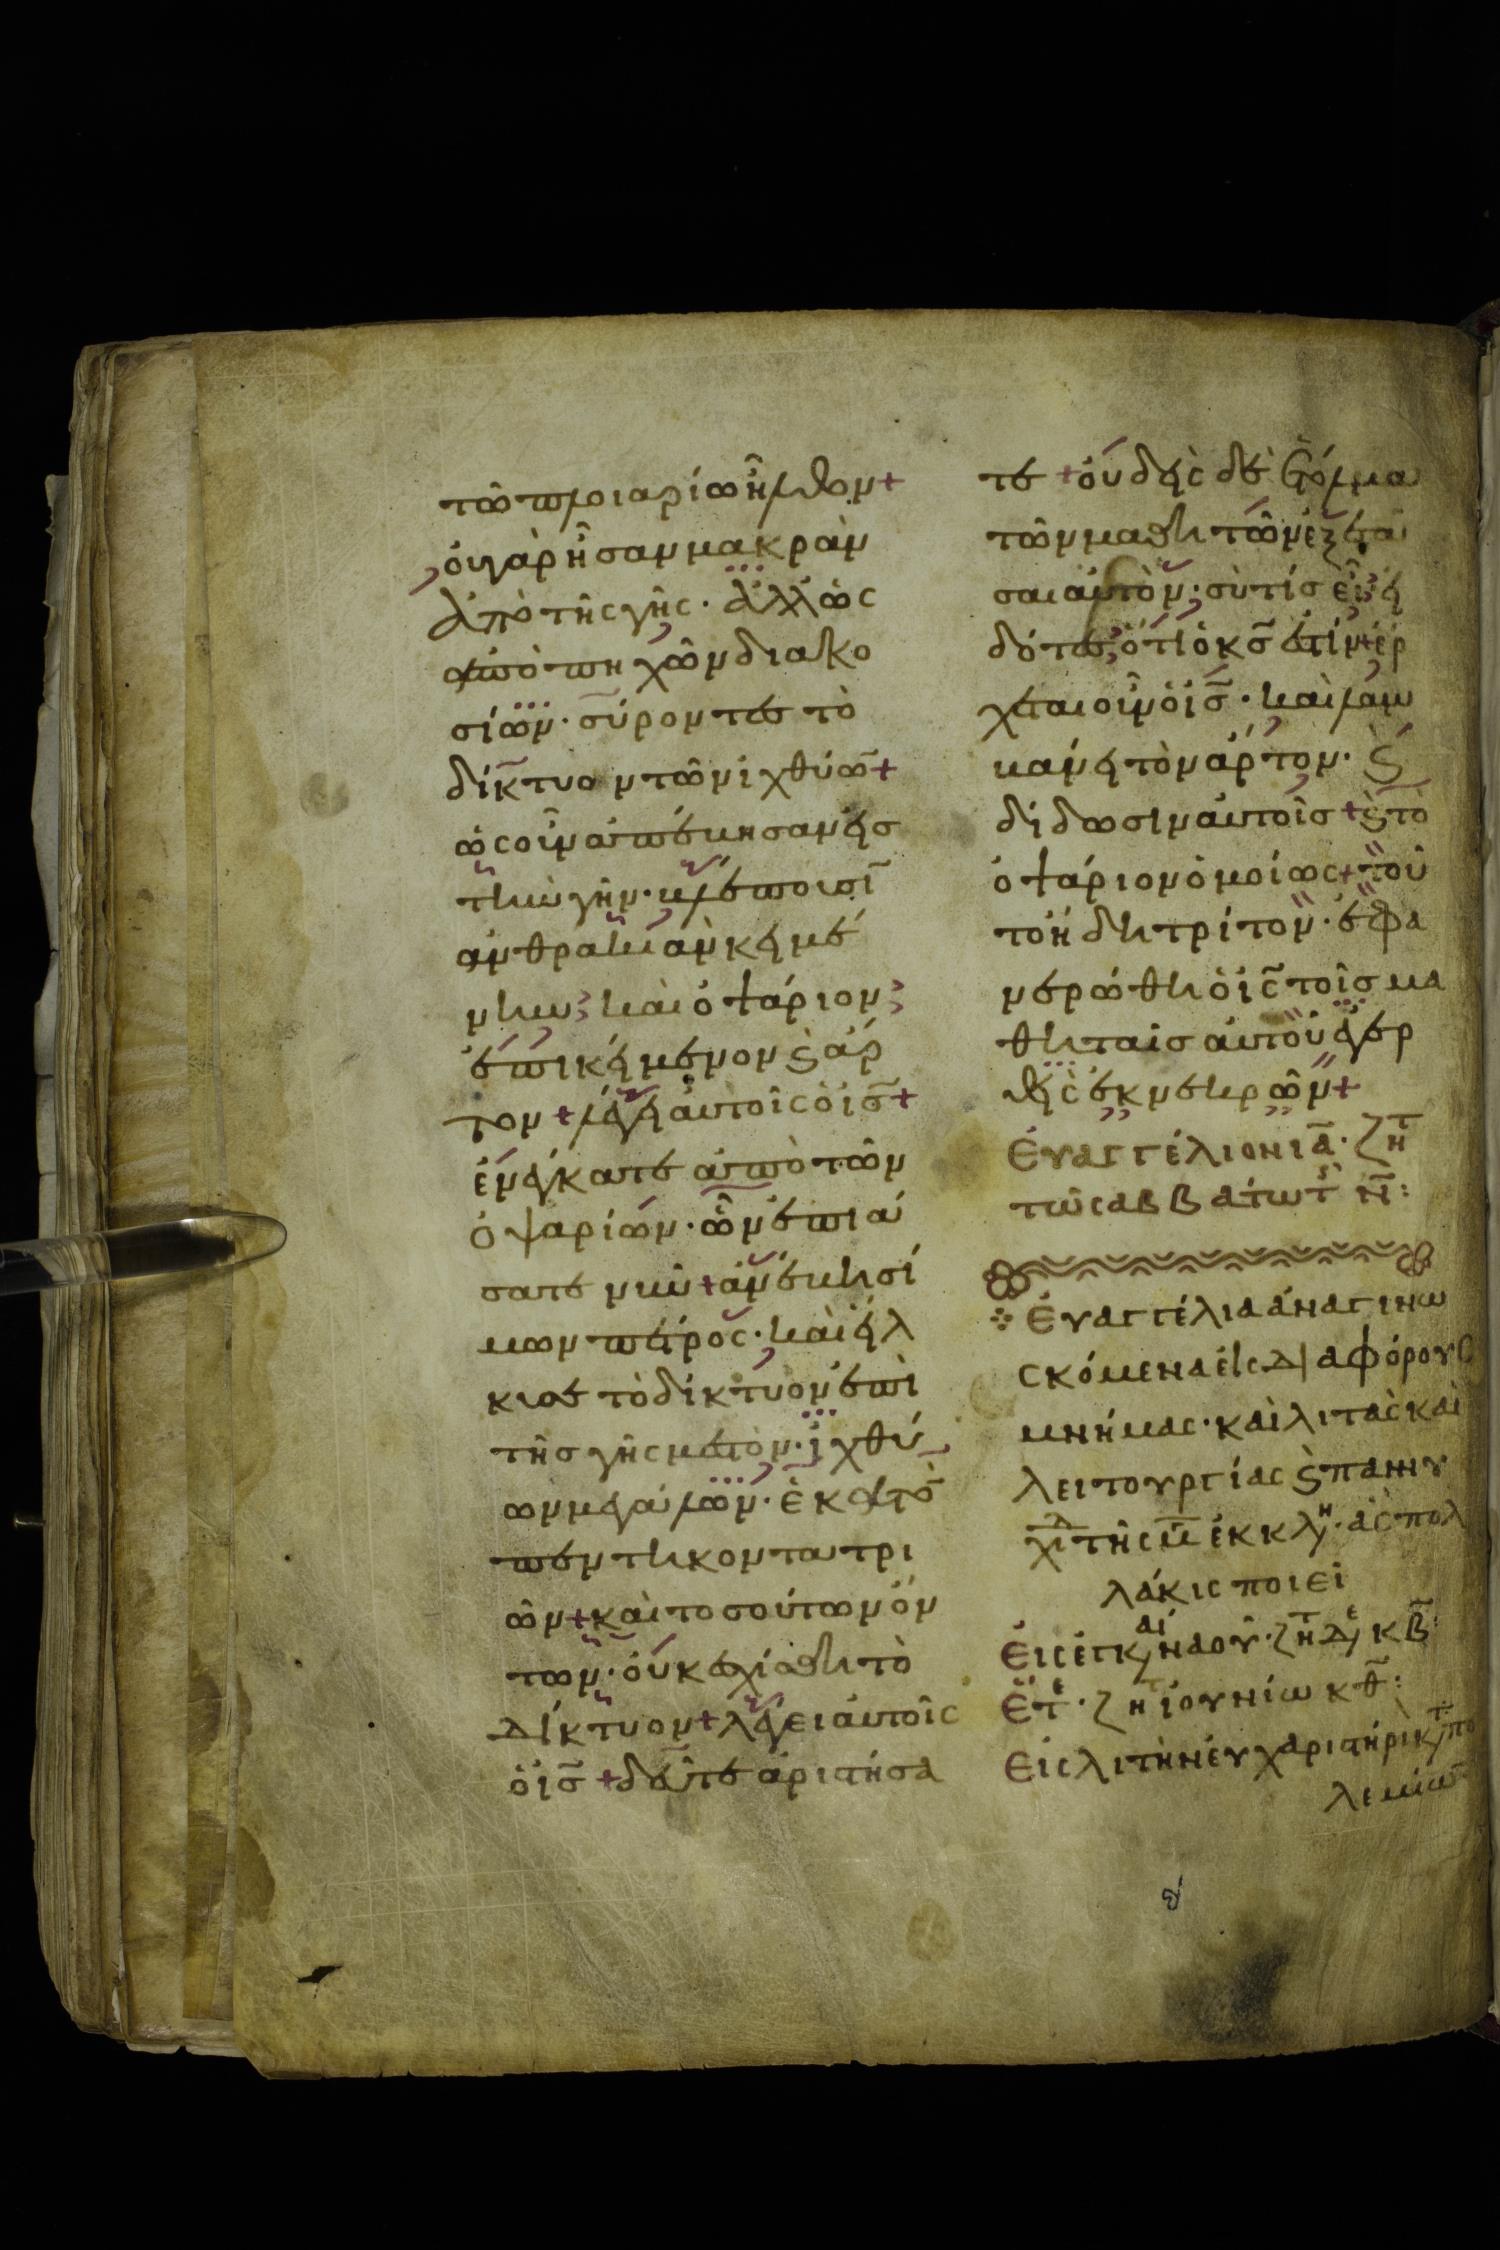 τῶ πλοιαρίω ἦλθον+
οὐ γὰρ ἦσαν μακρὰν
ἀπὸ τῆς γῆς· ἀλλ ὡς
ἀπὸ πηχῶν διακο
σίων· σύροντες τὸ
δίκτυον τῶν ἰχθύω̅+
ὡς οὖν ἀπέβησαν εἰς
τὴν γῆν· βλέπουσῑ
ἀνθρακιὰν κειμέ
νην· καὶ ὀψάριον
ἐπικείμενον ϛ ἄρ
τον + λέγει αὐτοῖς ὁ ις̅+
ἐνέγκατε ἀπὸ τῶν
ὀψαρίων· ὧν ἐπιά
σατε νῦν + ἀνέβη σί
μων πέτρος· καὶ εἵλ
κυσε τὸ δίκτυον ἐπὶ
τῆς γῆς μεστὸν· ἰχθύ
ων μεγάλων· ἑκατὸ̅
πεντήκοντα τρι
ῶν + καὶ τοσούτων ὄν
των· οὐκ ἐσχίσθη τὸ
δίκτυον + λέγει αὐτοῖς
ὁ ις̅ + δεῦτε ἀριστήσα
τε + οὐδεὶς δὲ ἐτόλμα
τῶν μαθητῶν ἐξετά
σαι αὐτὸν· σὺ τίς εἶ· εἰ
δότες ὅτι ὁ κς̅ ἐστίν + ἔρ
χεται οὖν ὁ ις̅· καὶ λαμ
βάνει τὸν ἄρτον· ϛ
δίδωσιν αὐτοῖς + ϛ τὸ
ὀψάριον ὁμοίως + τοῦ
το ἤδη τρίτον· ἐφα
νερώθη ὁ ις̅ τοῖς μα
θηταῖς αὐτοῦ ἐγερ
θεὶς ἐκ νεκρῶν+
Ἐυαγγέλιον ια̅· ζητ
τῶ σαββάτω τ̅ ν̅:
Ἐυαγγέλια ἀναγινω
σκόμενα εἰς διαφόρους
μνήμας· καὶ λιτὰς καὶ
λειτουργίας ϛ παννυ
χιδ τῆς μ̅ ἐκκλη· ἃς πολ
λάκις ποιεῖ
Εἰς ἐγκαί ναοῦ· ζητ δε κβ̅:
Ἕτε· ζητ ἰουνίω κθ̅:
Εἰς λιτὴν ἐυχαριστήρικ πο
λεμίω̅